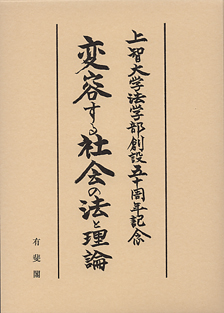 上智大学法学部創設五十周年記念
変容する社会の法と理論
有斐閣